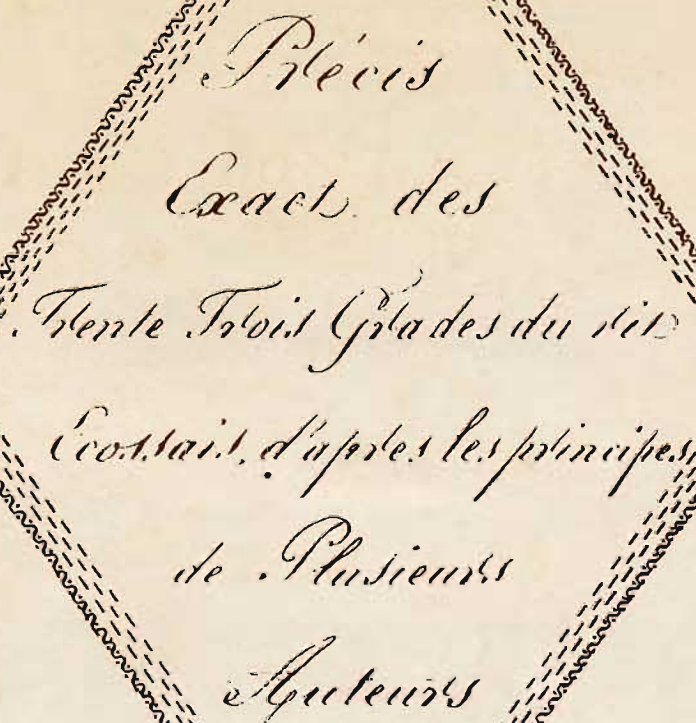 Précis
Exact des
Trente Trois Grades du rit
Ecossais, d'apres les principes
de Plusieurs
Auteurs